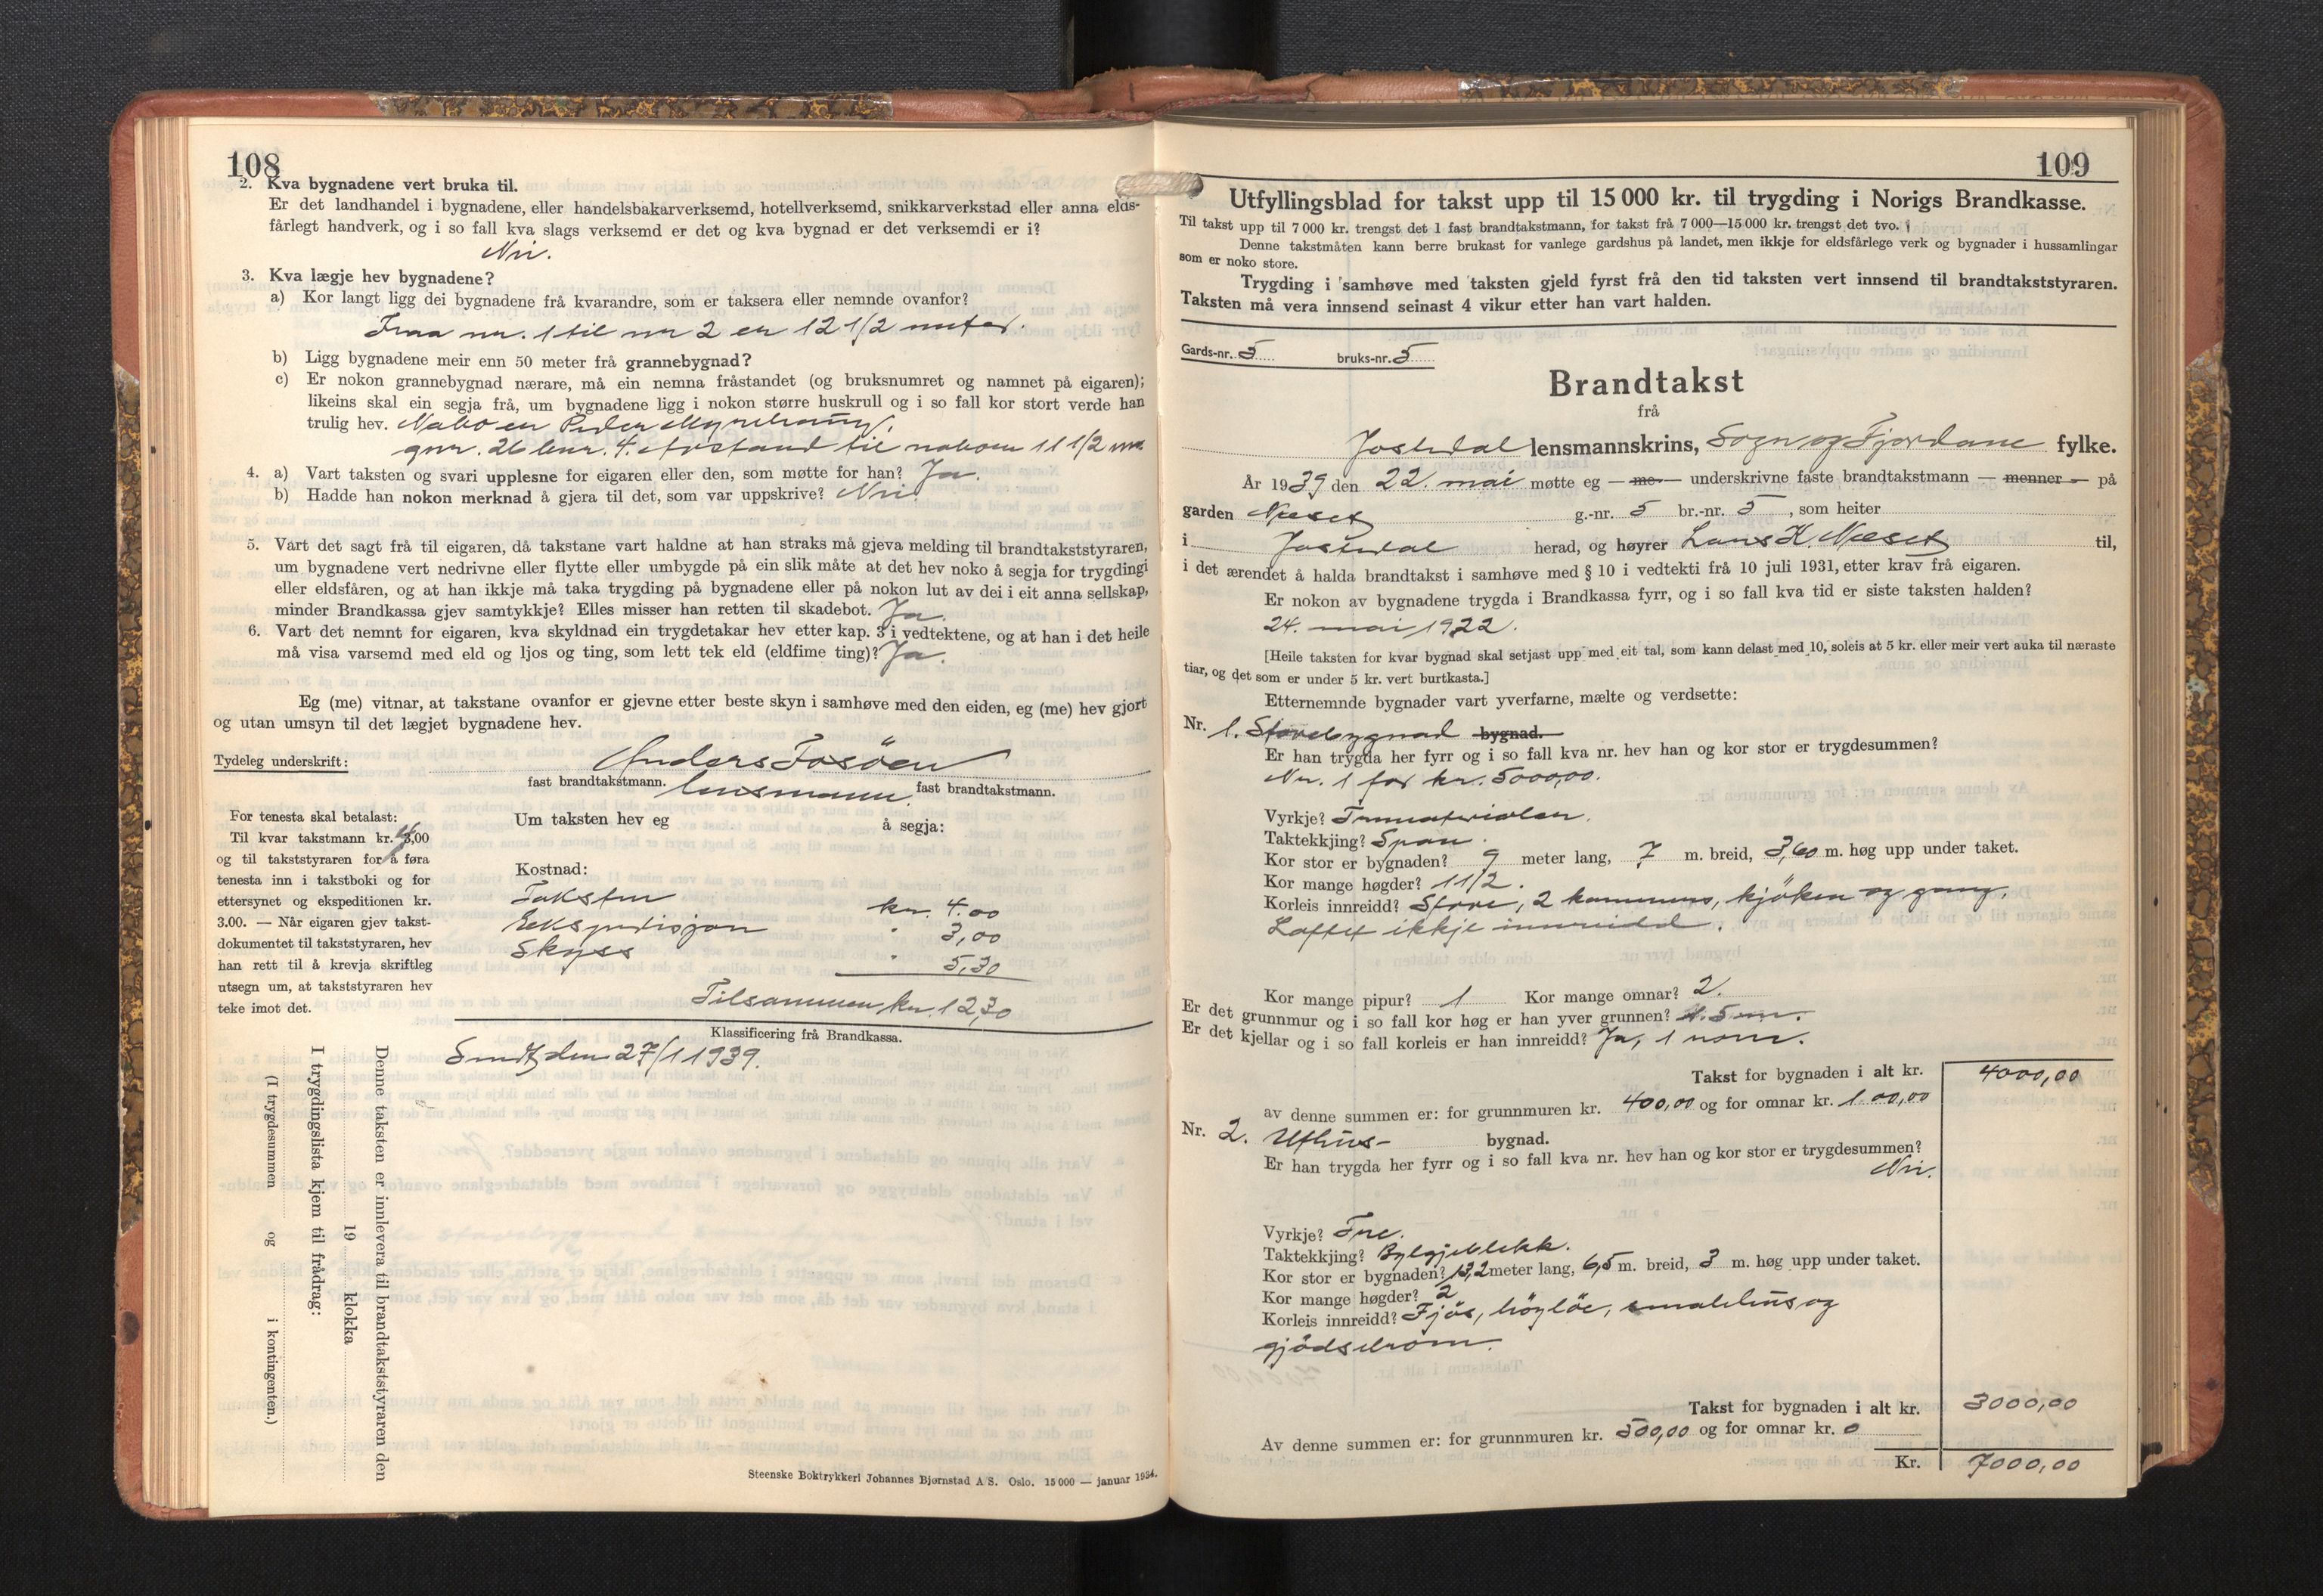 108
2. Kva bygnadene vert bruka til.
Er det landhandel i bygnadene, eller handelsbakarverksemd, hotellverksemd, snikkarverkstad eller anna elds-
fårlegt handverk, og i so fall kva slags verksemd er det og kva bygnad er det verksemdi er i?
Nei.
3. Kva lægje hev bygnadene?
a) Kor langt ligg dei bygnadene frå kvarandre, som er taksera eller nemnde ovanfor?
Fraa nr. 1 til nr 2 er 12 1/2 meter.
b) Ligg bygnadene meir enn 50 meter frå grannebygnad?
c) Er nokon grannebygnad nærare, må ein nemna fråstandet (og bruksnumret og namnet på eigaren);
likeins skal ein segja frå, um bygnadene ligg i nokon større huskrull og i so fall kor stort verde han
trulig hev. Nabo er Peder
gnr. 26 bnr. 4. Avstand til naboen 11 1/2 m.
4. a) Vart taksten og svari upplesne for eigaren eller den, som møtte for han? Ja.
b) Hadde han nokon merknad å gjera til det, som var uppskrive? Nei.
5. Vart det sagt frå til eigaren, då takstane vart haldne at han straks må gjeva melding til brandtakststyraren,
um bygnadene vert nedrivne eller flytte eller umbygde på ein slik måte at det hev noko å segja for trygdingi
eller eldsfåren, og at han ikkje må taka trygding på bygnadene eller på nokon lut av dei i eit anna sellskap,
minder Brandkassa gjev samtykkje? Elles misser han retten til skadebot. Ja.
6. Vart det nemnt for eigaren, kva skyldnad ein trygdetakar hev etter kap. 3 i vedtektene, og at han i det heile
må visa varsemd med eld og ljos og ting, som lett tek eld (eldfime ting)? Ja.
Eg (me) vitnar, at takstane ovanfor er gjevne etter beste skyn i samhøve med den eiden, eg (me) hev gjort
og utan umsyn til det lægjet bygnadene hev.
Tydeleg underskrift: Anders Fosöen
fast brandtakstmann. lensmann. fast brandtakstmann.
For tenesta skal betalast:
Til kvar takstmann kr. 4,00
og til takststyraren for å føra
tenesta inn i takstboki og for
ettersynet og ekspeditionen kr.
3.00. — Når eigaren gjev takst-
dokumentet til takststyraren, hev
han rett til å krevja skriftleg
utsegn um, at takststyraren hev
teke imot det.
Um taksten hev eg å segja:
Kostnad:
Taksten kr. 4.00
Ekspedisjon " 3,00
Skyss " 5,30
Tilsammen kr. 12,30
Klassificering frå Brandkassa.
Sendt den 27/1 1939.
Denne taksten er innlevera til brandtakststyraren den
19 klokka
I trygdingslista kjem til frådrag:
(I trygdesummen og i kontingenten.)
Steenske Boktrykkeri Johannes Bjørnstad A/S. Oslo. 15 000 — januar 1934.
109
Utfyllingsblad for takst upp til 15 000 kr. til trygding i Norigs Brandkasse.
Til takst upp til 7 000 kr. trengst det 1 fast brandtakstmann, for takst frå 7 000—15 000 kr. trengst det tvo.
Denne takstmåten kann berre brukast for vanlege gardshus på landet, men ikkje for eldsfårlege verk og bygnader i hussamlingar
som er noko store.
Trygding i samhøve med taksten gjeld fyrst frå den tid taksten vert innsend til brandtakststyraren.
Taksten må vera innsend seinast 4 vikur etter han vart halden.
Gards-nr. 5 bruks-nr. 5
Brandtakst
frå
Jostedal lensmannskrins, Sogn og Fjordane fylke.
År 1939 den 22. mai møtte eg — me — underskrivne faste brandtakstmann — menner — på
garden Næset g.-nr. 5 br.-nr. 5, som heiter
i Jostedal herad, og høyrer Lars K. Næset til,
i det ærendet å halda brandtakst i samhøve med § 10 i vedtekti frå 10 juli 1931, etter krav frå eigaren.
Er nokon av bygnadene trygda i Brandkassa fyrr, og i so fall kva tid er siste taksten halden?
24. mai 1922.
[Heile taksten for kvar bygnad skal setjast upp med eit tal, som kann delast med 10, soleis at 5 kr. eller meir vert auka til næraste
tiar, og det som er under 5 kr. vert burtkasta.]
Etternemnde bygnader vart yverfarne, mælte og verdsette:
Nr. 1. Stovebygnad bygnad.
Er han trygda her fyrr og i so fall kva nr. hev han og kor stor er trygdesummen?
Nr. 1 for kr. 5000,00.
Vyrkje? Trematerialen.
Taktekkjing? Spon.
Kor stor er bygnaden? 9 meter lang, 7 m. breid, 3,60 m. høg upp under taket.
Kor mange høgder? 1 1/2.
Korleis innreidd? Stove, 2 kammers, kjöken og gang.
Loftet ikkje innreidd.
Kor mange pipur? 1 Kor mange omnar? 2.
Er det grunnmur og i so fall kor høg er han yver grunnen? 1.5 m.
Er det kjellar og i so fall korleis er han innreidd? Ja, 1 rom.
Takst for bygnaden i alt kr. 4000,00
av denne summen er: for grunnmuren kr. 400,00 og for omnar kr. 100,00
Nr. 2. Uthus- bygnad.
Er han trygda her fyrr og i so fall kva nr. hev han og kor stor er trygdesummen?
Nei.
Vyrkje? Tre.
Taktekkjing? Bylgjeblekk.
Kor stor er bygnaden? 13,2 meter lang, 6,5 m. breid, 3 m. høg upp under taket.
Kor mange høgder? 2
Korleis innreidd? Fjös, höyløe, smalehus og
gjödselrom.
Takst for bygnaden i alt kr. 3000,00
Av denne summen er: for grunnmuren kr. 500,00 og for omnar kr. 0
Kr. 7000,00